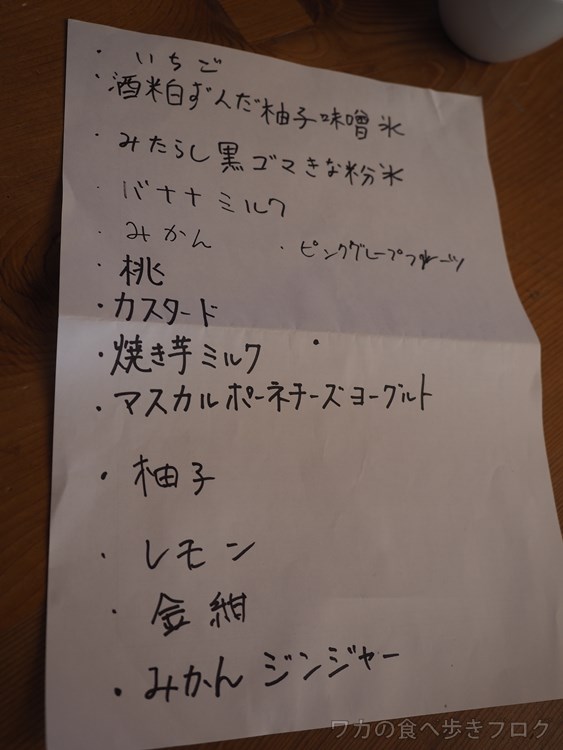 ・いちご
・酒粕ずんだ柚子味噌氷
・みたらし黒ゴマきな粉氷
・バナナミルク
・みかん ・ピンクグレープフルーツ
・桃
・カスタード
・焼き芋ミルク
・マスカルポーネチーズヨーグルト
・柚子
・レモン
・金紺
・みかんジンジャー
ワカの食べ歩きブログ